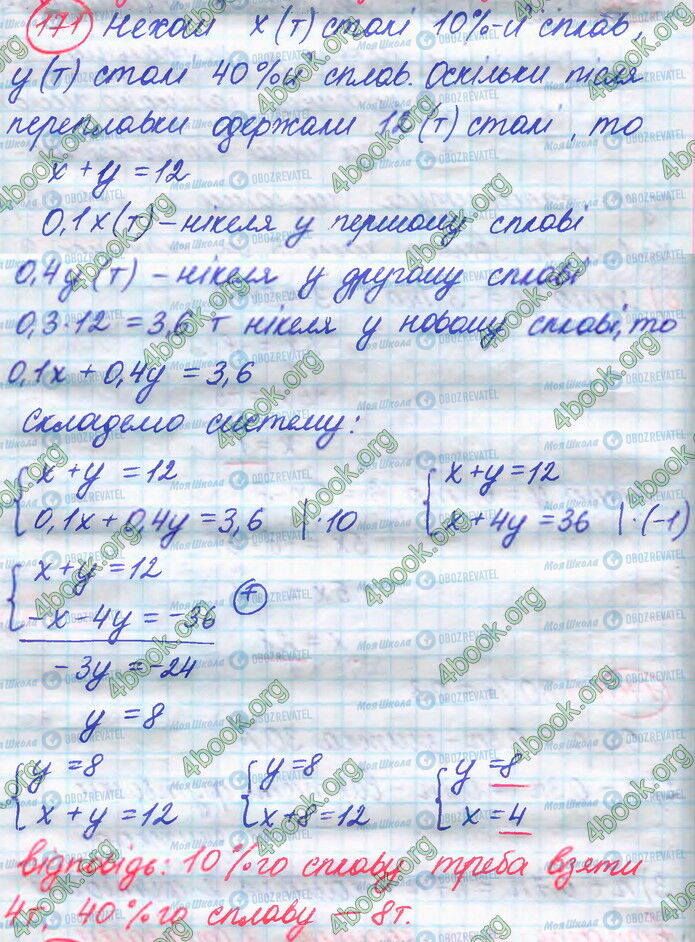 171) Нехай x (т) сталі 10%-й сплав,
y (т) сталі 40%й сплав. Оскільки після
переплавки одержали 12 (т) сталі, то
x + y = 12
0,1x (т) - нікеля у першому сплаві
0,4y (т) - нікеля у другому сплаві
0,3·12 = 3,6 т нікеля у новому сплаві, то
0,1x + 0,4y = 3,6
Складемо систему:
{ x + y = 12 { x + y = 12
0,1x + 0,4y = 3,6 |·10 x + 4y = 36 |·(-1)
{ x + y = 12
-x - 4y = -36 +
-3y = -24
y = 8
{ y = 8 { y = 8 { y = 8
x + y = 12 x + 8 = 12 x = 4
Відповідь: 10%го сплаву треба взяти
4т, 40%го сплаву - 8т.
4book.org
Моя Школа
OBOZREVATEL